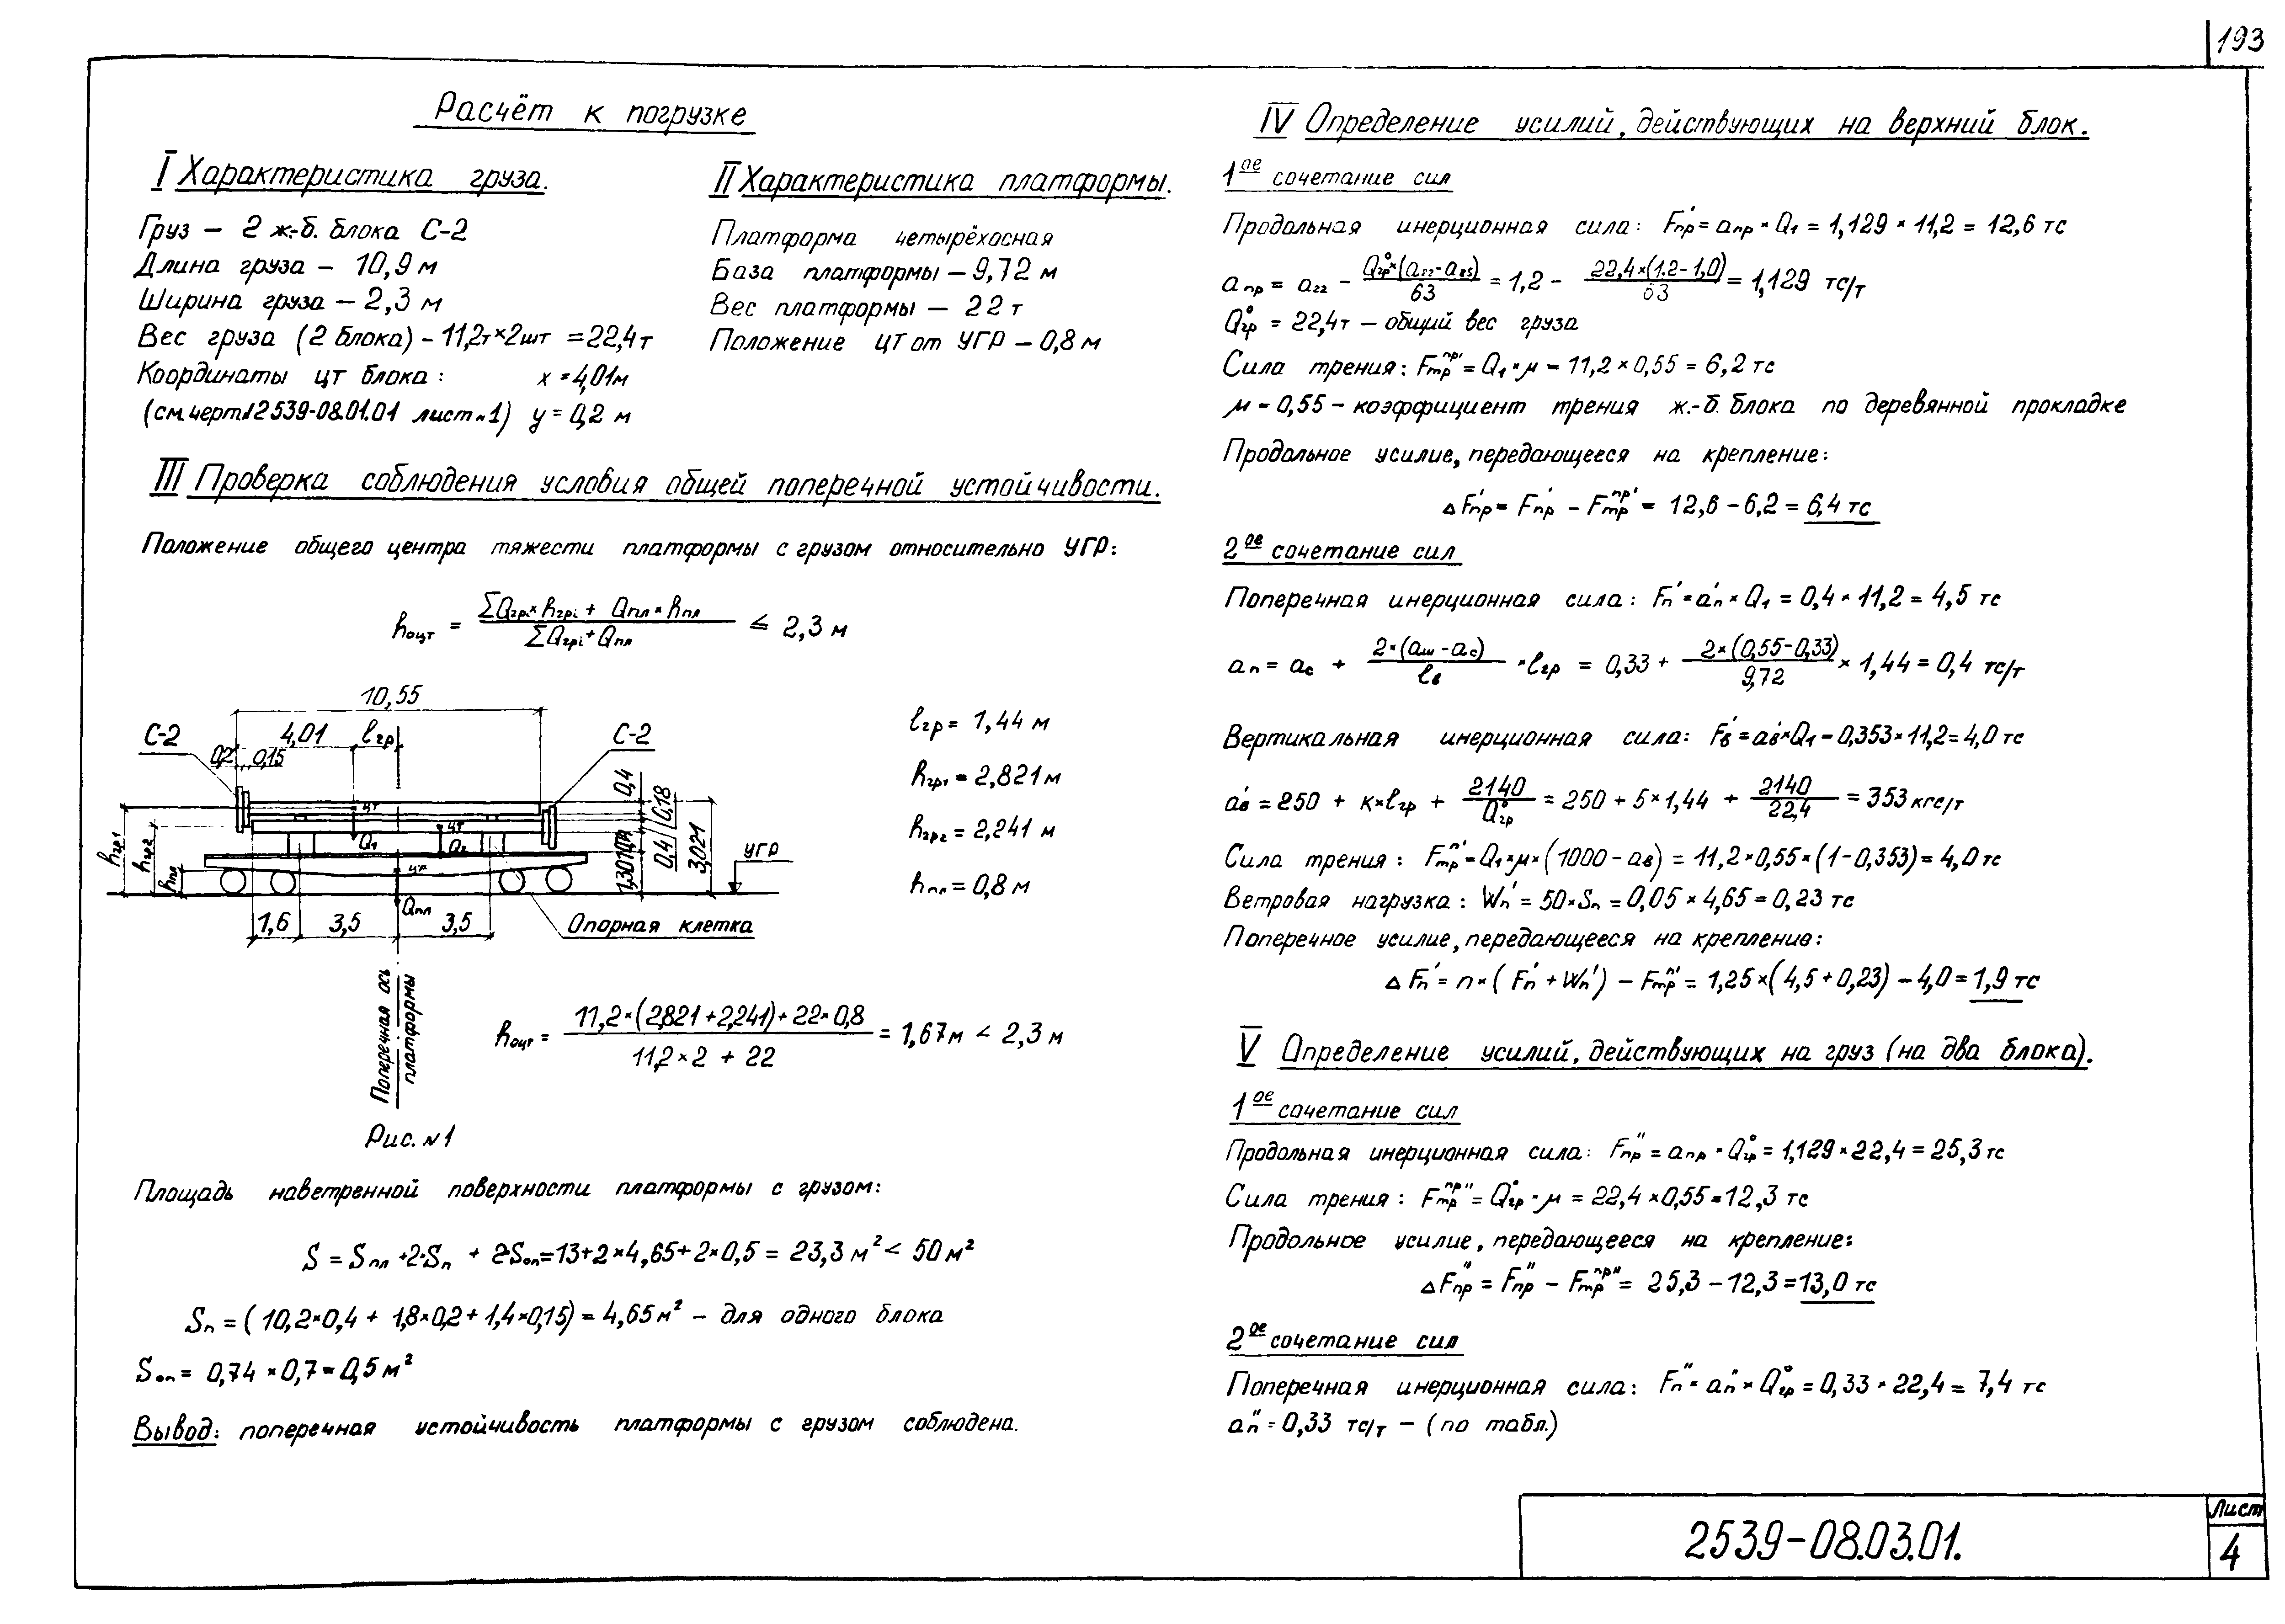 193
Расчёт к погрузке
I Характеристика груза.
Груз – 2 ж.-б. блока С-2
Длина груза – 10,9 м
Ширина груза – 2,3 м
Вес груза (2 блока) – 11,2т×2шт = 22,4т
Координаты цт блока: x = 4,01м
(см.черт.12539-08.01.01 лист н1) y = 0,2 м
II Характеристика платформы.
Платформа четырёхосная
База платформы – 9,72 м
Вес платформы – 22 т
Положение ЦТ от УГР – 0,8 м
III Проверка соблюдения условия общей поперечной устойчивости.
Положение общего центра тяжести платформы с грузом относительно УГР:
hоцт = (ΣQгрi × hгрi + Qпл × hпл) / (ΣQгрi + Qпл) ≤ 2,3 м
10,55
С-2
4,01
lгр
С-2
0,2
0,15
0,4
0,18
0,4
3,021
hгр1
hгр2
hпл
цт
Q1
цт
Q2
цт
Qпл
УГР
1,6
3,5
3,5
Опорная клетка
Поперечная ось
платформы
lгр = 1,44 м
hгр1 = 2,821 м
hгр2 = 2,241 м
hпл = 0,8 м
hоцт = (11,2×(2,821+2,241)+22×0,8) / (11,2×2 + 22) = 1,67м < 2,3 м
Рис. N1
Площадь наветренной поверхности платформы с грузом:
S = Sпл + 2·Sп + 2·Sоп = 13+2×4,65+2×0,5 = 23,3 м² < 50 м²
Sп = (10,2×0,4 + 1,8×0,2 + 1,4×0,15) = 4,65 м² – для одного блока
Sоп = 0,74 × 0,7 = 0,5 м²
Вывод: поперечная устойчивость платформы с грузом соблюдена.
IV Определение усилий, действующих на верхний блок.
1ое сочетание сил
Продольная инерционная сила: Fпр' = апр × Q1 = 1,129 × 11,2 = 12,6 тс
апр = а22 – Qгр°×(а22–а85) / 63 = 1,2 – 22,4×(1.2–1,0) / 63 = 1,129 тс/т
Qгр° = 22,4т – общий вес груза
Сила трения: Fтр пр' = Q1 × μ = 11,2 × 0,55 = 6,2 тс
μ – 0,55 – коэффициент трения ж.-б. блока по деревянной прокладке
Продольное усилие, передающееся на крепление:
ΔFпр' = Fпр' – Fтр пр' = 12,6 – 6,2 = 6,4 тс
2ое сочетание сил
Поперечная инерционная сила: Fп' = ап' × Q1 = 0,4 × 11,2 = 4,5 тс
ап = ас + 2×(аш – ас) / lв × lгр = 0,33 + 2×(0,55–0,33) / 9,72 × 1,44 = 0,4 тс/т
Вертикальная инерционная сила: Fв' = ав' × Q1 = 0,353×11,2 = 4,0 тс
ав' = 250 + к×lгр + 2140 / Qгр° = 250 + 5×1,44 + 2140 / 22,4 = 353 кгс/т
Сила трения: Fтр п' = Q1×μ×(1000–ав) = 11,2×0,55×(1–0,353) = 4,0 тс
Ветровая нагрузка: Wп' = 50×Sп = 0,05 × 4,65 = 0,23 тс
Поперечное усилие, передающееся на крепление:
ΔFп' = n×(Fп' + Wп') – Fтр п' = 1,25×(4,5 + 0,23) – 4,0 = 1,9 тс
V Определение усилий, действующих на груз (на два блока).
1ое сочетание сил
Продольная инерционная сила: Fпр" = апр × Qгр° = 1,129×22,4 = 25,3 тс
Сила трения: Fтр пр" = Qгр° × μ = 22,4 ×0,55 = 12,3 тс
Продольное усилие, передающееся на крепление:
ΔFпр" = Fпр" – Fтр пр" = 25,3 – 12,3 = 13,0 тс
2ое сочетание сил
Поперечная инерционная сила: Fп" = ап" × Qгр° = 0,33 × 22,4 = 7,4 тс
ап" = 0,33 тс/т – (по табл.)
2539-08.03.01.
Лист
4